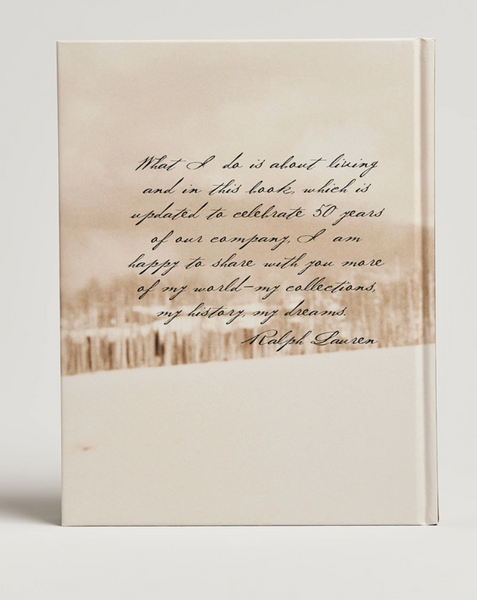 What I do is about living
and in this book, which is
updated to celebrate 50 years
of our company, I am
happy to share with you more
of my world—my collections,
my history, my dreams.
Ralph Lauren